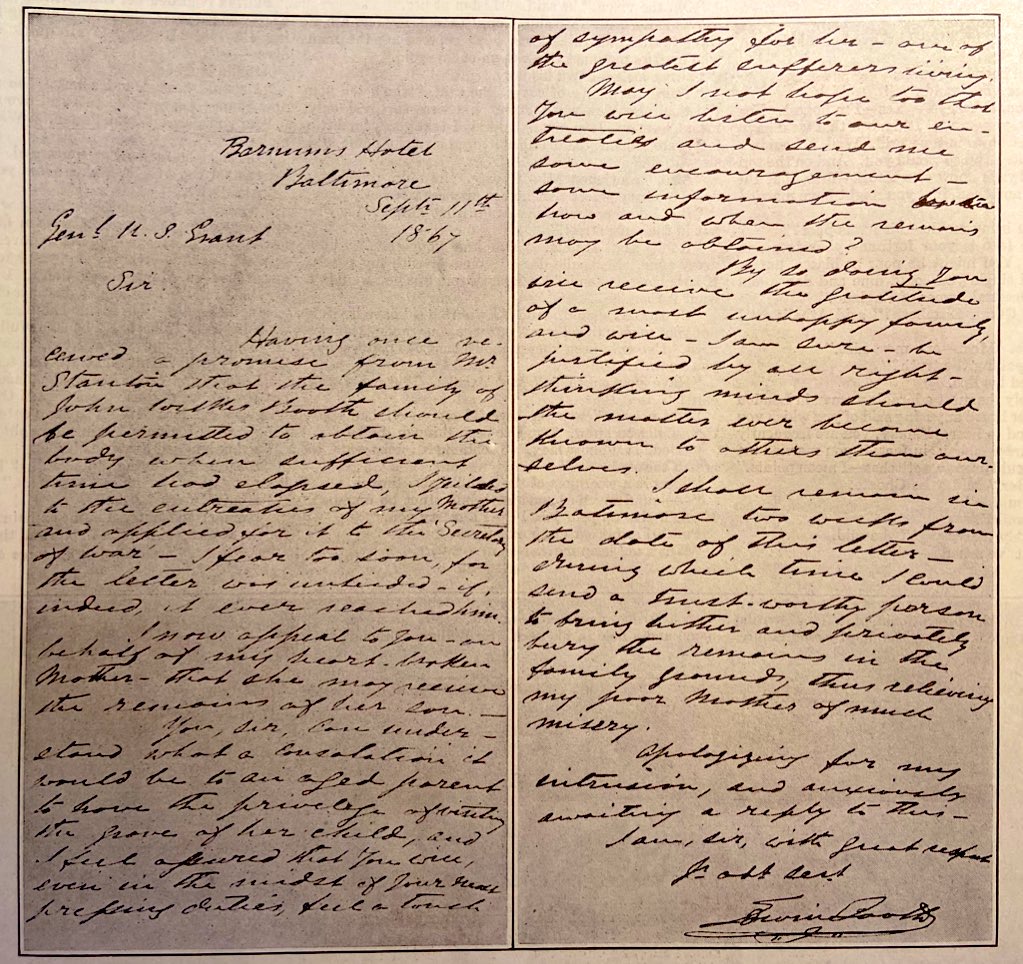 Barnums Hotel
Baltimore
Septr 11th
1867
Genl. U. S. Grant
Sir.
Having once re-
ceived a promise from Mr.
Stanton that the family of
John Wilkes Booth should
be permitted to obtain the
body when sufficient
time had elapsed, I yielded
to the entreaties of my Mother
and applied for it to the Secretary
of War - I fear too soon, for
the letter was unheeded - if,
indeed, it ever reached him.
I now appeal to you - on
behalf of my heart-broken
Mother - that she may receive
the remains of her son. -
You, sir, can under-
stand what a consolation it
would be to an aged parent
to have the privilege of visiting
the grave of her child, and
I feel assured that you will,
even in the midst of your most
pressing duties, feel a touch
of sympathy for her - one of
the greatest sufferers living.
May I not hope too that
you will listen to our en-
treaties and send me
some encouragement -
some information
how and when the remains
may be obtained?
By so doing you
will receive the gratitude
of a most unhappy family,
and will - I am sure - be
justified by all right-
thinking minds should
the matter ever become
known to others than our-
selves.
I shall remain in
Baltimore two weeks from
the date of this letter -
during which time I could
send a trust-worthy person
to bring hither and privately
bury the remains in the
family grounds, thus relieving
my poor Mother of much
misery.
Apologizing for my
intrusion, and anxiously
awaiting a reply to this -
I am, sir, with great respect
Yr. obt sert
Edwin Booth